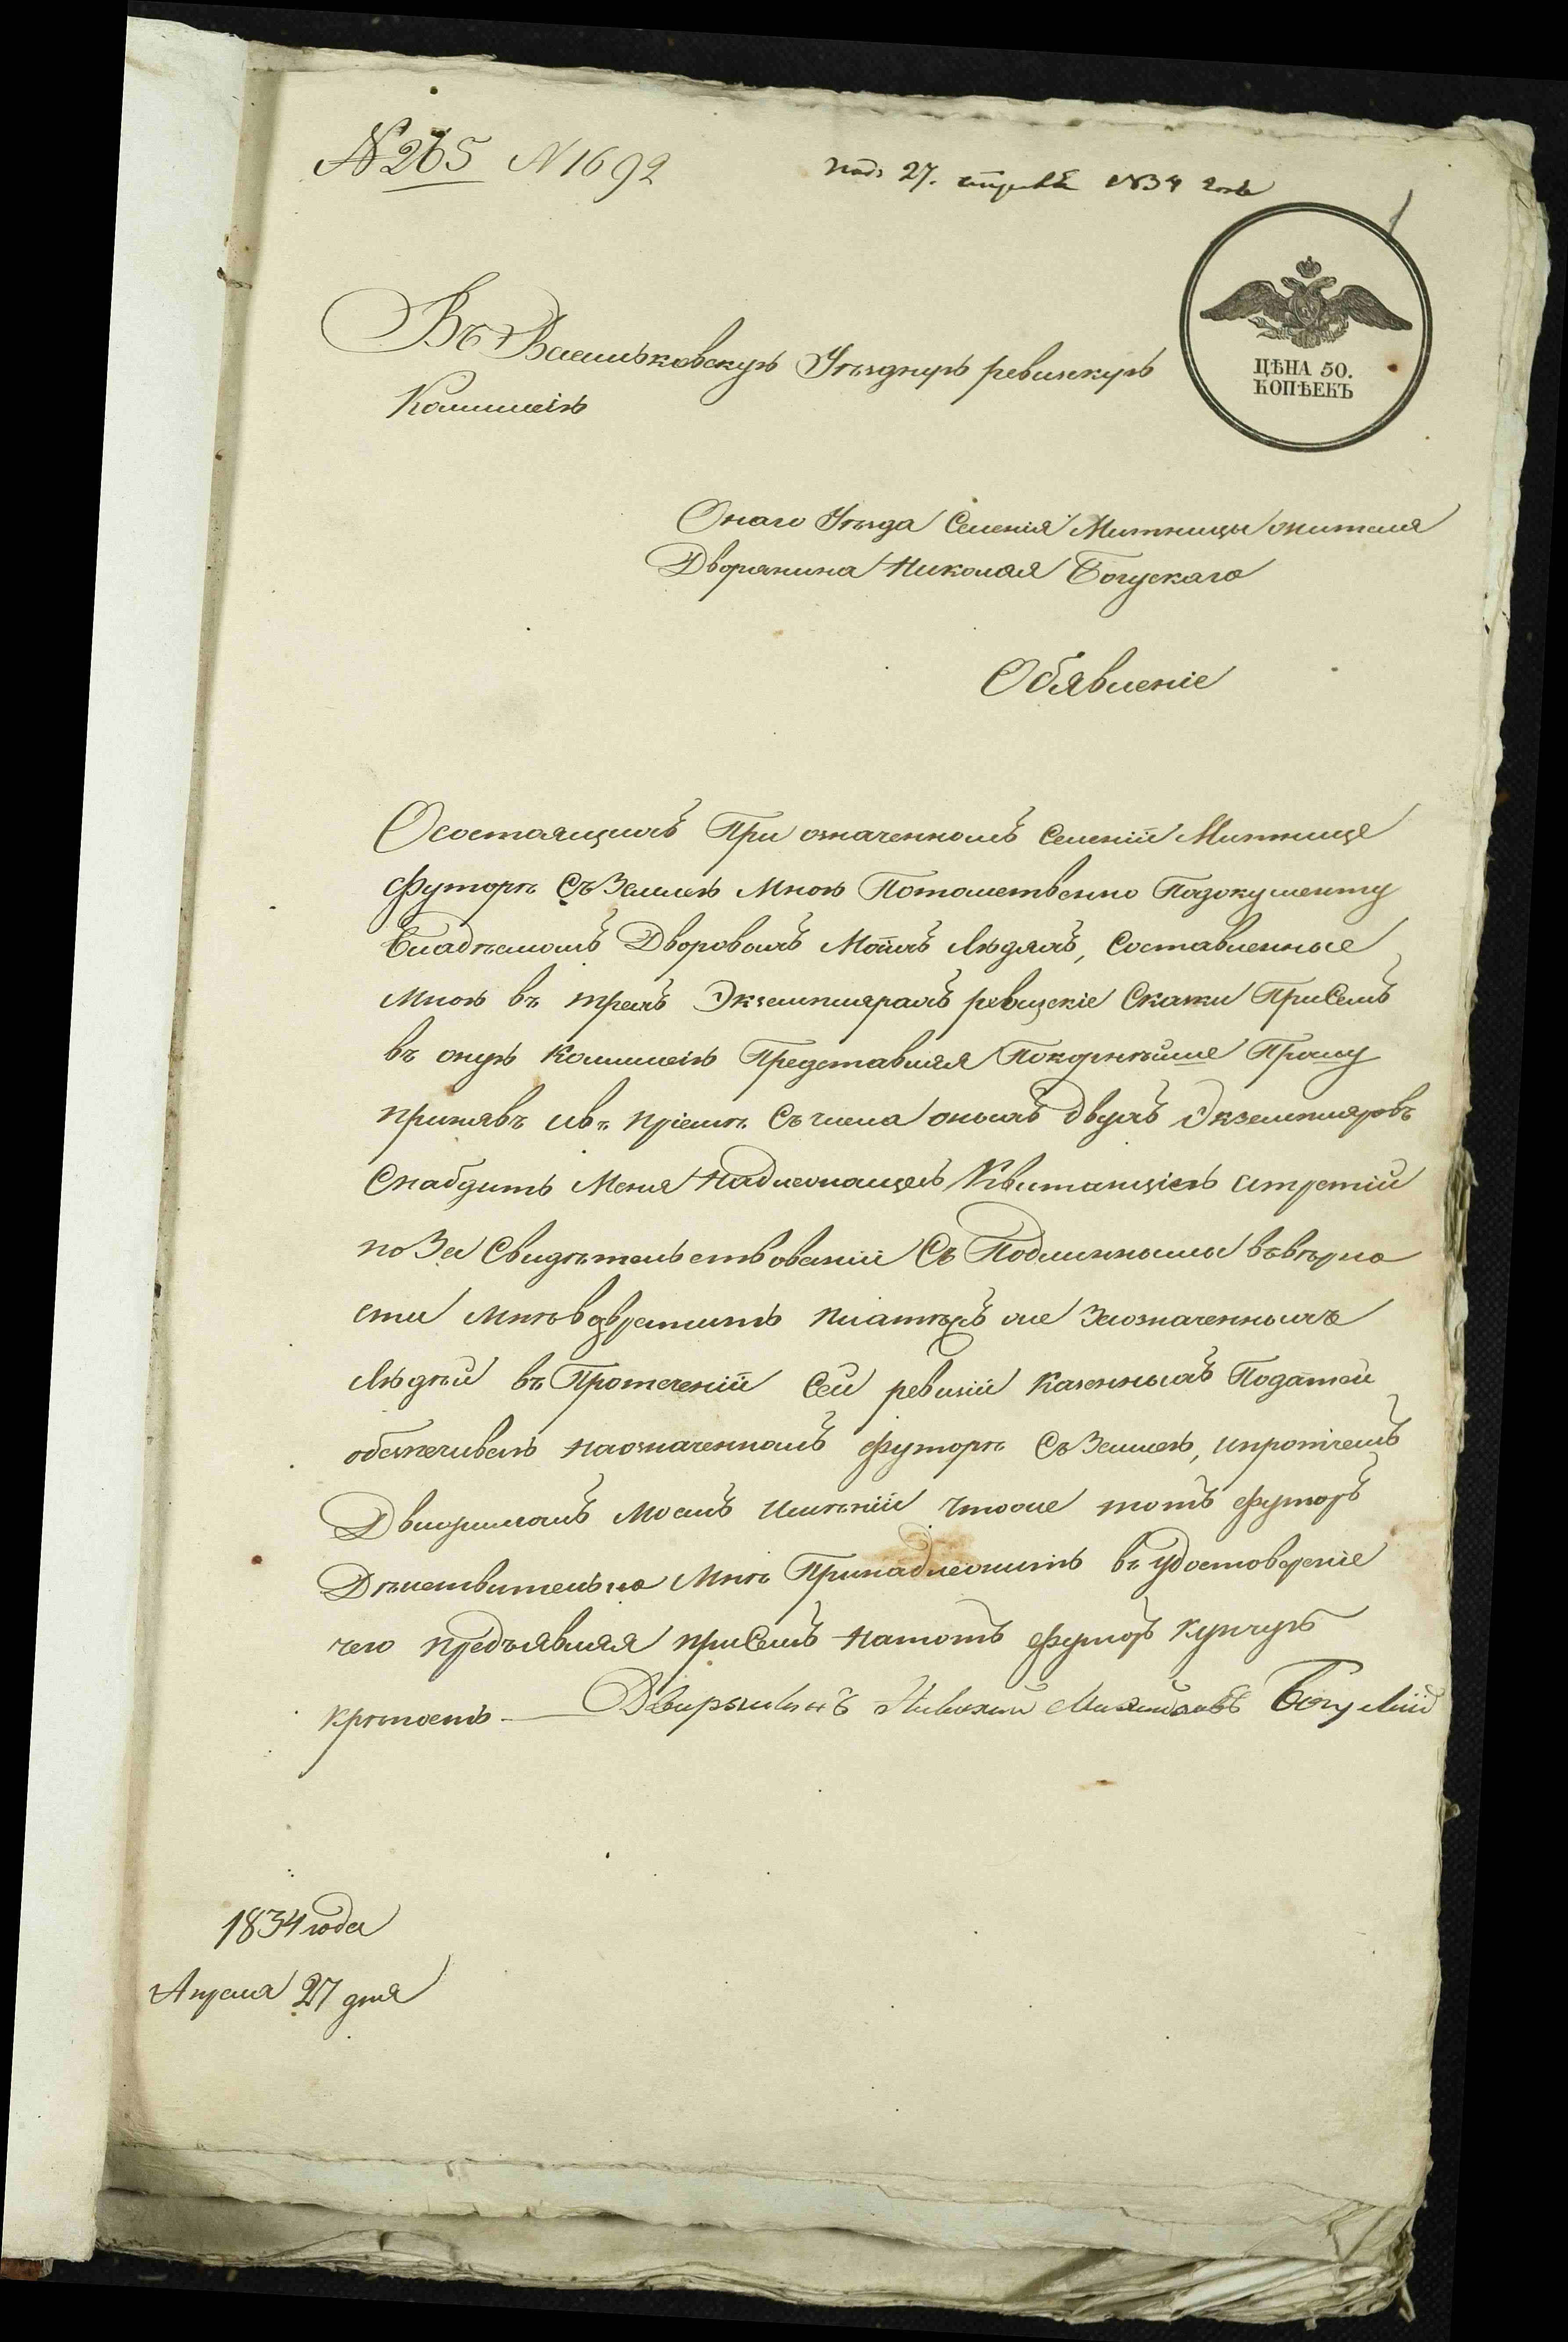 №265 N1692
под 27. апреля 1834 года
ЦѢНА 50.
КОПѢЕКЪ
Въ Васильковскую Уѣздную ревизкую
Коммисію
Онаго Уѣзда Селенія Митницы жителя
Дворянина Николая Богускаго
Обявленіе
Осостоящихъ При означенномъ Селеніи Митнице
Футорѣ Съ Землею Мною Потомственно Подокументу
Владѣемомъ Дворовыхъ Моихъ Людяхъ, Составленные
Мною въ трехъ Экземплярахъ ревизскіе Скаски ПриСемъ
въ оную Коммисію Представляя Покорнѣише Прошу
принявъ ивъ пріемѣ Съчисла оныхъ двухъ Экземпляровъ
Снабдить Меня Надлежащею Квитанціею итретій
поЗа Свидѣтельствованіи Съ Подлиннымы ввѣрно
сти Мнѣ взвратить платѣжъ же Заозначенныхъ
Людѣй въ Протеченіи Сей ревизіи Казенныхъ Податей
обезпечиваю наозначенномъ футорѣ СъЗемлею, ипротчемъ
Движимомъ Моемъ Имѣніи чтоже тотъ футоръ
Дѣйствительно Мнѣ Принадлежить въ удостовереніе
чего предъявляя приСемъ натотъ футоръ купчую
крѣпость — Дворянинъ Николай Богускій
1834 года
Апреля 27 дня